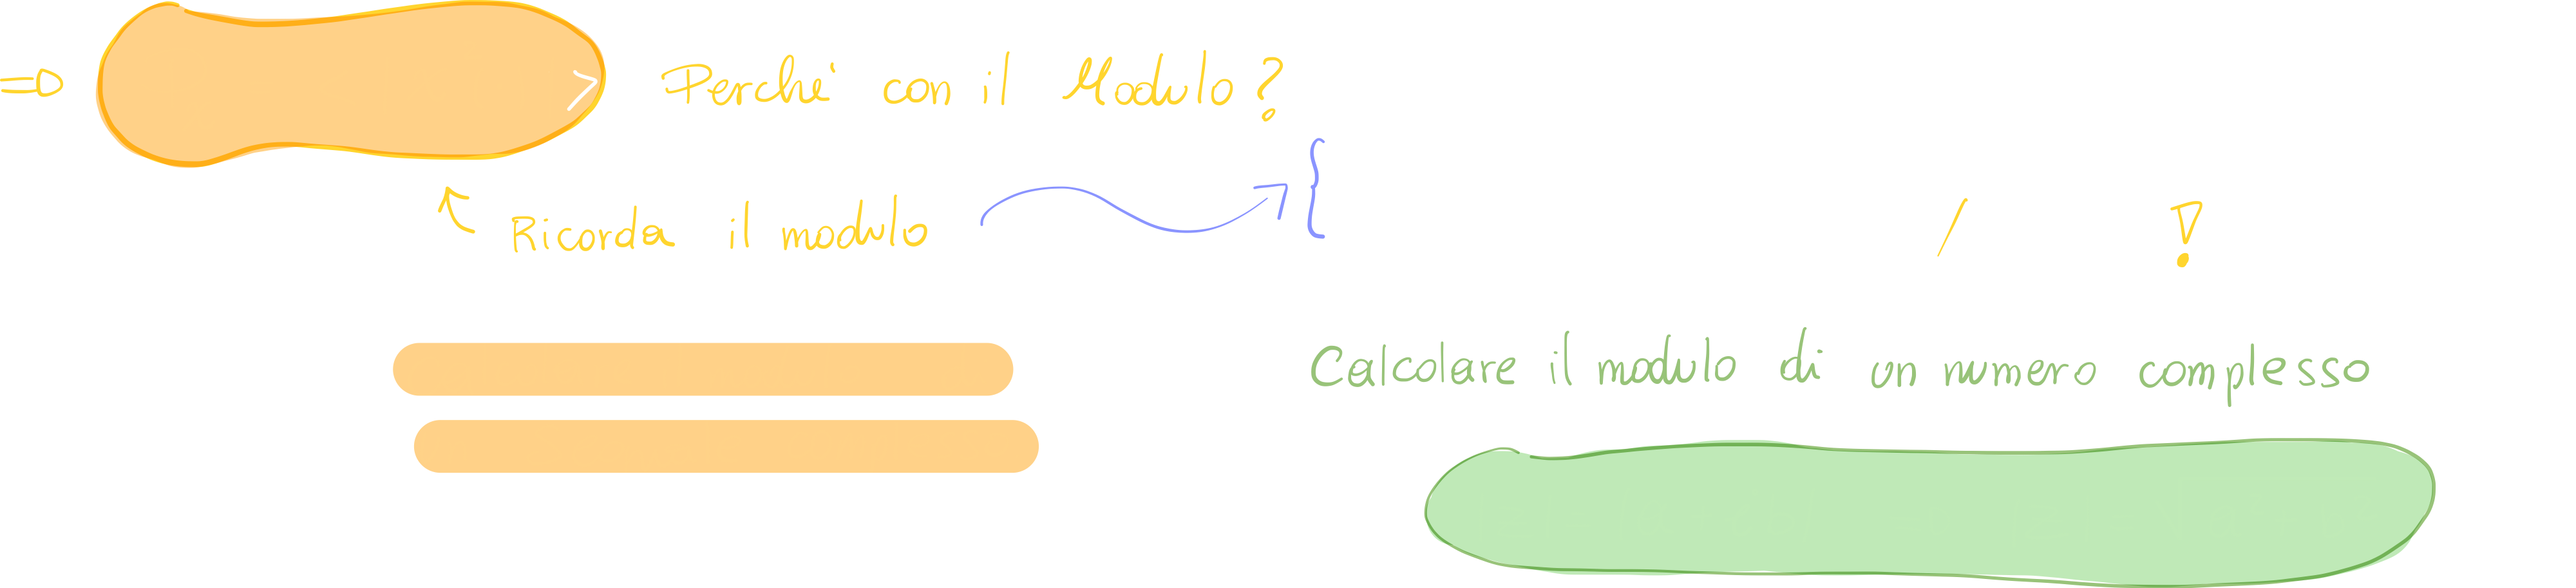 => Perchè con il Modulo?
Ricorda il modulo
{ / !
Calcolare il modulo di un numero complesso